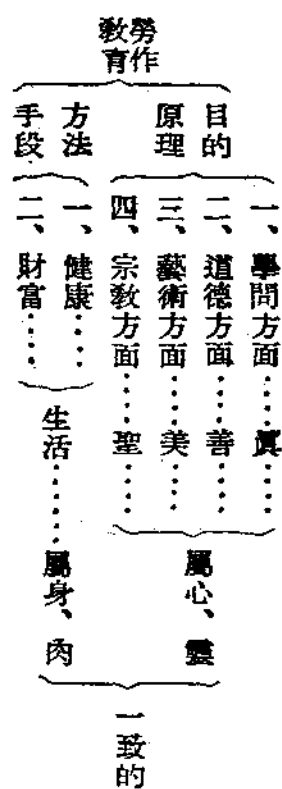 勞作教育
目的原理
一、學問方面……眞
二、道德方面……善
三、藝術方面……美
四、宗教方面……聖
屬心、靈
方法手段
一、健康……
二、財富……
生活……
屬身、肉
一致的